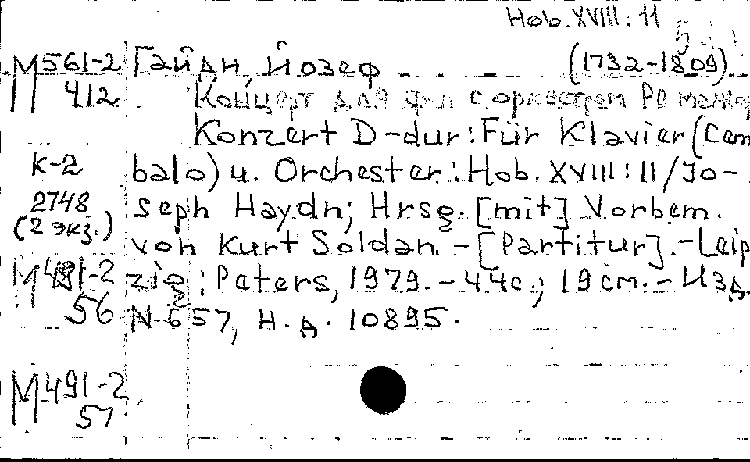 Hob. XVIII: 11
М561-2 Гайдн, Йозеф (1732-1809).
412 Концерт для ф-п с оркестром Ре мажор
Konzert D-dur: Für Klavier (Cem
К-2 balo) u. Orchester: Hob. XVIII: 11 / Jo-
2748 seph Haydn; Hrsg. [mit] Vorbem.
(2 экз.) von Kurt Soldan. - [Partitur]. - Leip
zig: Peters, 1979. - 44с.; 19 cm. - Изд.
56 N 657, Н. д. 10895.
М491-2
57